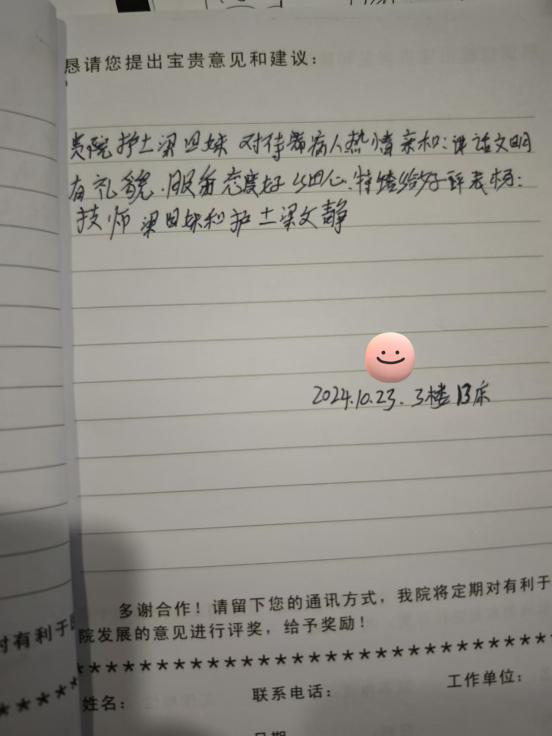 恳请您提出宝贵意见和建议：
贵院护士梁四妹对待病人热情亲和：讲话文明
有礼貌．服务态度好．细心．特给好评表扬：
技师梁四妹和护士梁文静
2024.10.23.3楼13床
多谢合作！请留下您的通讯方式，我院将定期对有利于
院发展的意见进行评奖，给予奖励！
对有利于
***********************************
姓名：
联系电话：
工作单位：